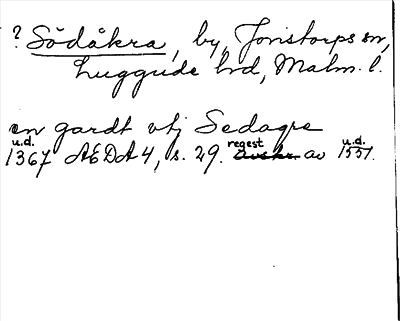 ? Södåkra, by, Jonstorps sn,
Luggude hd, Malm. l.
en gardt vtj Sedagre
u.d. regest u.d.
1367 AEDA 4, s. 29. avskr. av 1551.